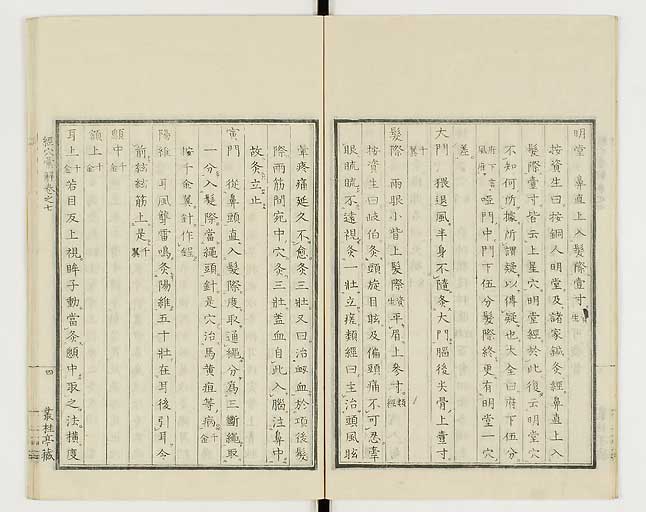 明堂　鼻直上入髮際壹寸資生
按資生曰按銅人明堂及諸家鍼灸經鼻直上入
髮際壹寸皆云上星穴明堂經於此復云明堂穴
不知何所據所謂疑以傳疑也大全曰府下伍分
府下言風府瘂門中門下伍分髮際終更有明堂一穴
差
大門　猥退風半身不隨灸大門腦後尖骨上壹寸
千翼
髮際　兩眼小眥上髮際資生平眉上參寸類經
按資生曰岐伯灸頭旋目眩及偏頭痛不可忍牽
眼䀮䀮不遠視灸一壯立瘥類經曰主治頭風眩
暈疼痛延久不愈灸三壯又曰治衂血於項後髮
際兩筋間宛中穴灸三壯蓋血自此入腦注鼻中
故灸立止
寅門　從鼻頭直入髮際度取通繩分為三斷繩取
一分入髮際當繩頭針是穴治馬黃疸等病千金
按千金翼針作
陽維　耳風聾雷鳴灸陽維五十壯在耳後引耳令
前弦弦筋上是千翼
顖中千金
額上千金
耳上千金若目反上視眸子動當灸顖中取之法橫度
經穴彙解卷之七
四
叢桂亭藏